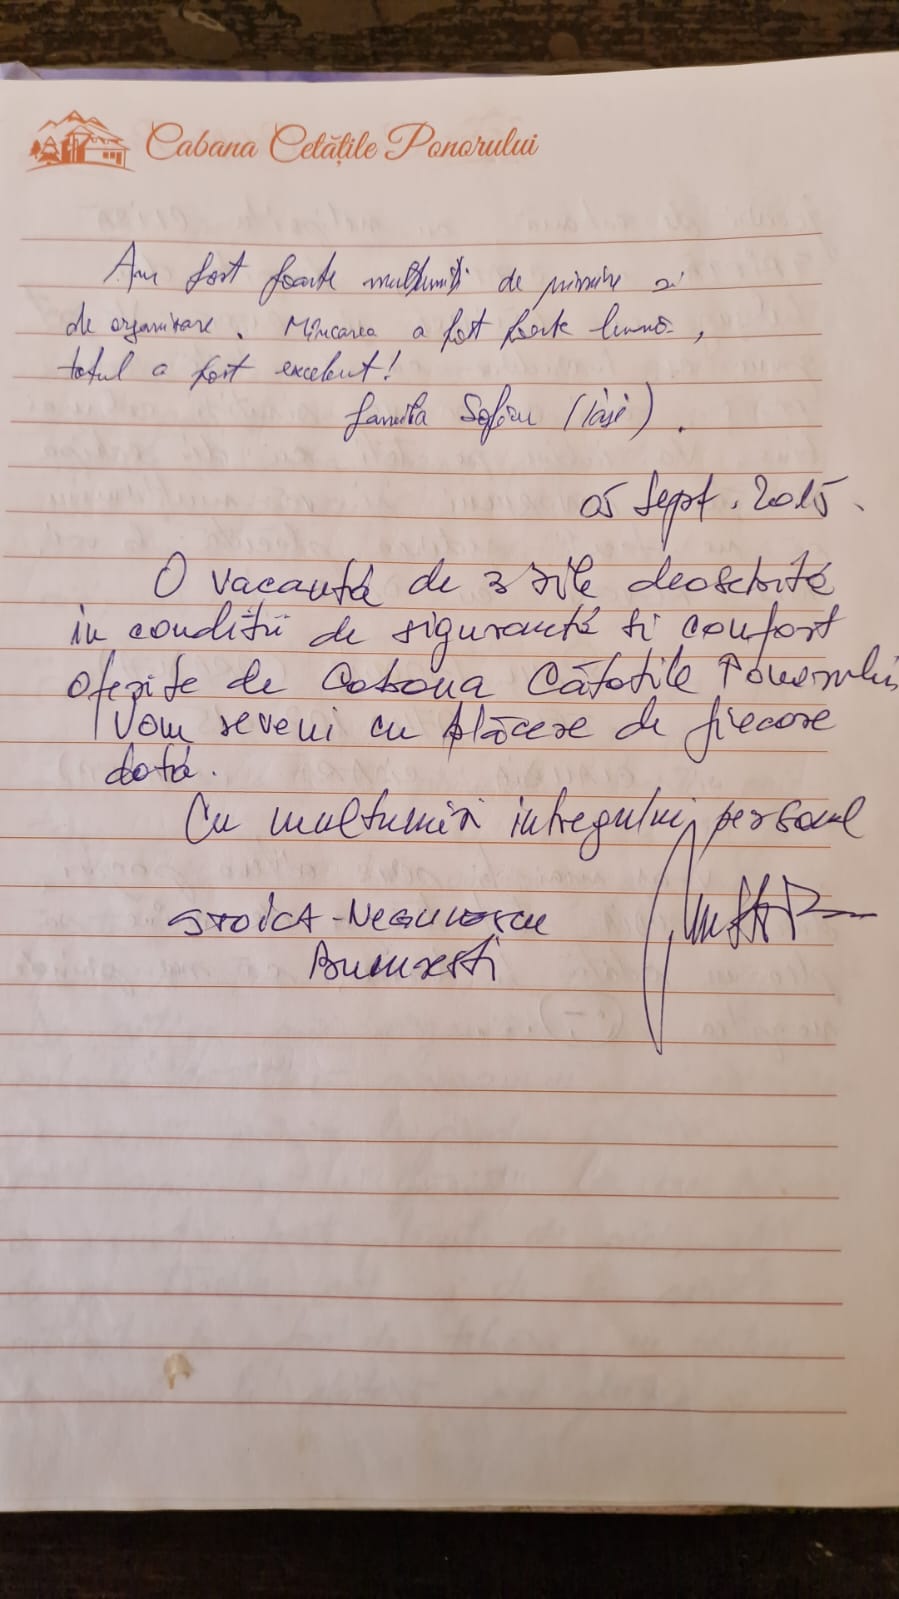 Cabana Cetățile Ponorului
Am fost foarte mulțumiți de primire și
de organizare. Mîncarea a fost foarte bună,
totul a fost excelent!
familia Sofian (Iași).
05 Sept. 2015.
O vacanță de 3 zile deosebită
in condiții de siguranță si confort
oferite de Cabana Cătățile Ponorului
Vom reveni cu plăcere de fiecare
dată.
Cu multumiri intregului personal
STOICA-NEGULESCU
București